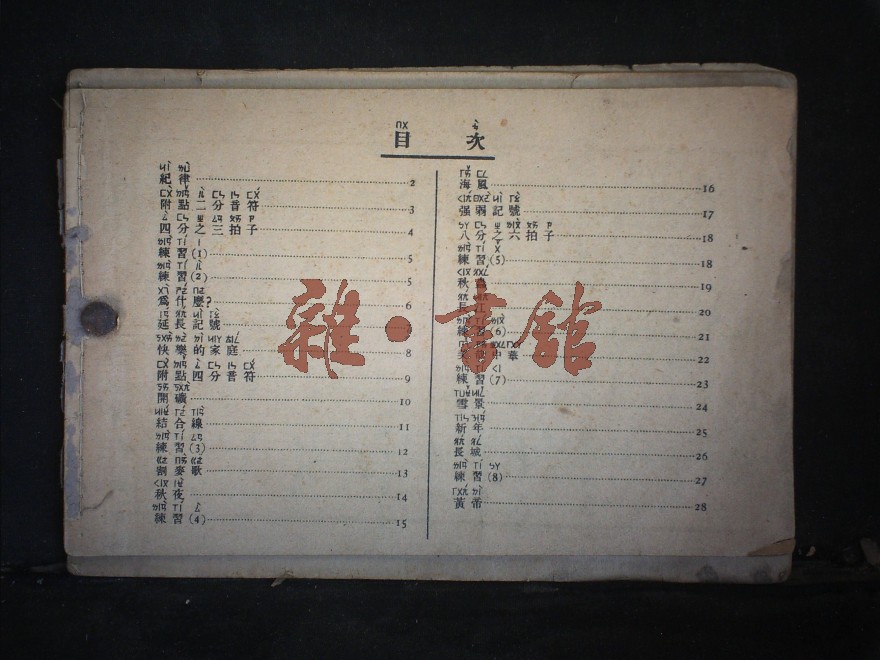 目次
紀律 2
附點二分音符 3
四分之三拍子 4
練習(1) 5
練習(2) 5
爲什麼? 6
延長記號
快樂的家庭 8
附點四分音符 9
開礦 10
結合線 11
練習(3) 12
割麥歌 13
秋夜 14
練習(4) 15
海風 16
强弱記號 17
八分之六拍子 18
練習(5) 18
秋蟲 19
長江 20
練習(6) 21
中華 22
練習(7) 23
雪景 24
新年 25
長城 26
練習(8) 27
黃帝 28
雜·書館